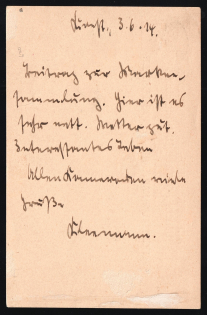 3.6.14.
Beitrag zur Marken-
sammlung. Hier ist es
sehr nett. Wetter gut.
Interessantes Leben
Allen Kameraden viele
Grüße